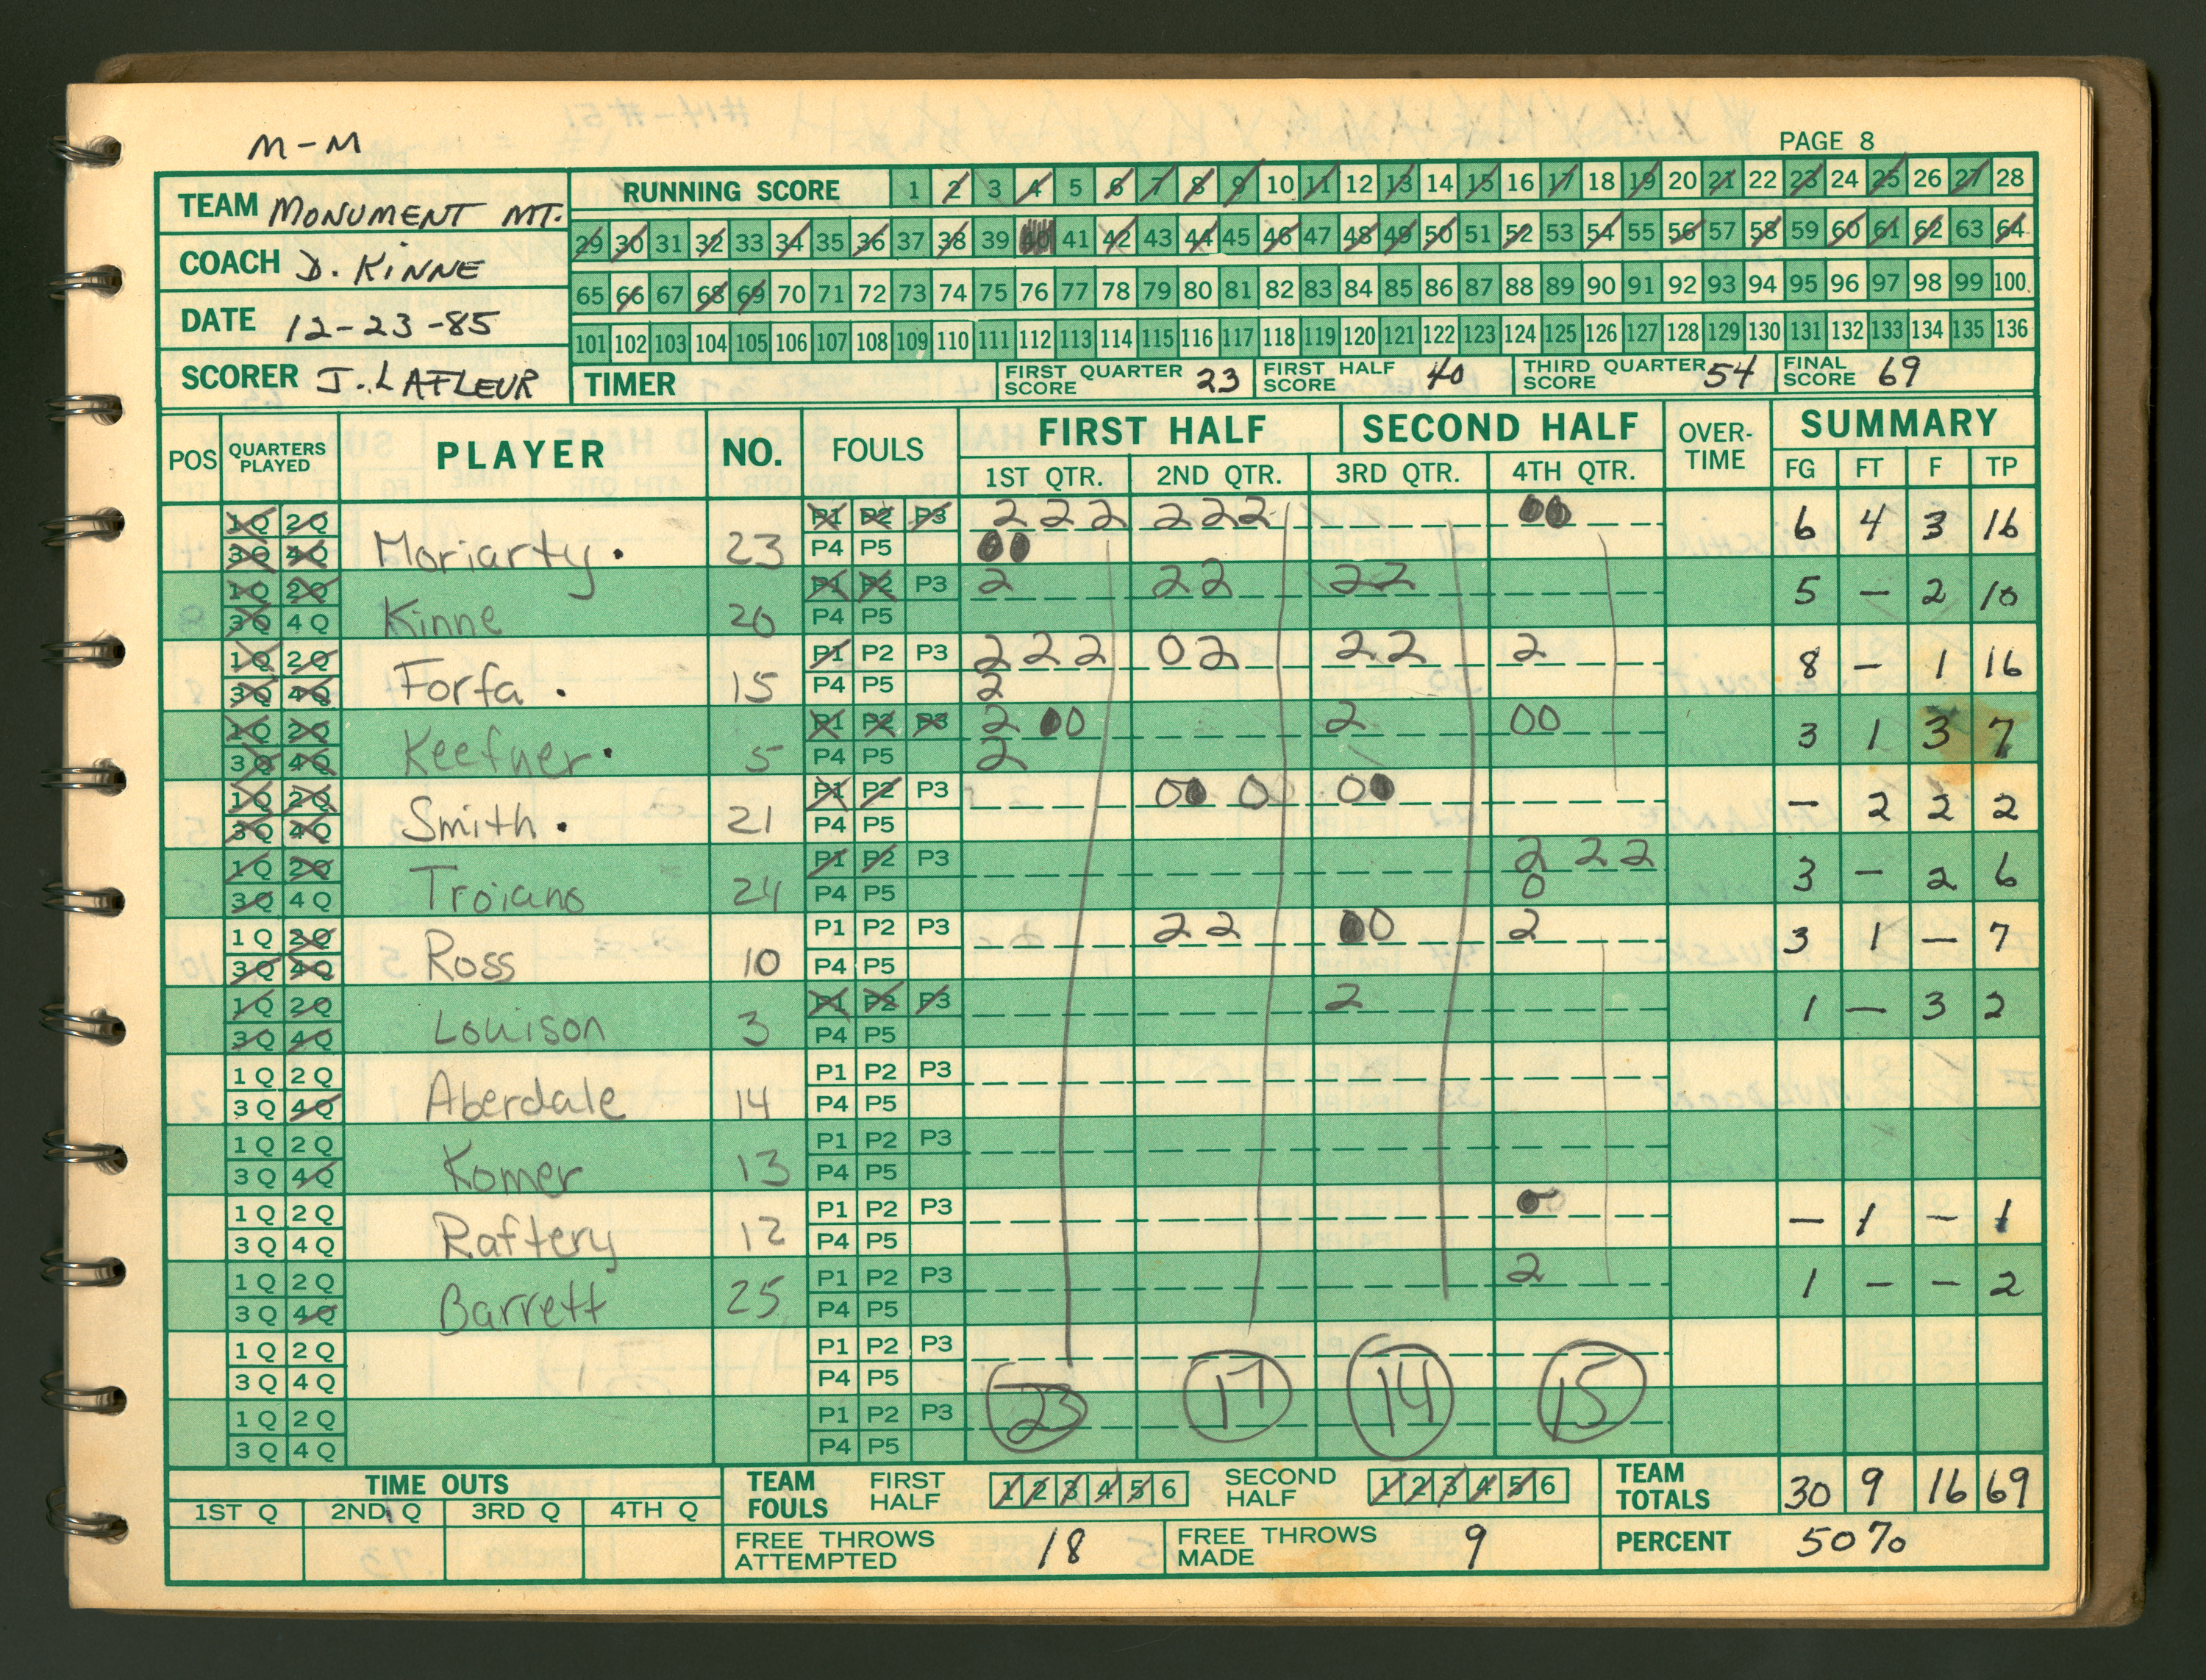 M-M
PAGE 8
TEAM MONUMENT MT.
COACH D. KINNE
DATE 12-23-85
SCORER J. LAFLEUR
RUNNING SCORE 1 2 3 4 5 6 7 8 9 10 11 12 13 14 15 16 17 18 19 20 21 22 23 24 25 26 27 28
29 30 31 32 33 34 35 36 37 38 39 40 41 42 43 44 45 46 47 48 49 50 51 52 53 54 55 56 57 58 59 60 61 62 63 64
65 66 67 68 69 70 71 72 73 74 75 76 77 78 79 80 81 82 83 84 85 86 87 88 89 90 91 92 93 94 95 96 97 98 99 100
101 102 103 104 105 106 107 108 109 110 111 112 113 114 115 116 117 118 119 120 121 122 123 124 125 126 127 128 129 130 131 132 133 134 135 136
TIMER FIRST QUARTER SCORE 23 FIRST HALF SCORE 40 THIRD QUARTER SCORE 54 FINAL SCORE 69
POS QUARTERS PLAYED PLAYER NO. FOULS FIRST HALF SECOND HALF OVER-TIME SUMMARY
1ST QTR. 2ND QTR. 3RD QTR. 4TH QTR. FG FT F TP
1Q 2Q P1 P2 P3 2 2 2 2 2 2 0 0
3Q 4Q Moriarty. 23 P4 P5 0 0 6 4 3 16
1Q 2Q P1 P2 P3 2 2 2 2 2
3Q 4Q Kinne 20 P4 P5 5 - 2 10
1Q 2Q P1 P2 P3 2 2 2 0 2 2 2 2
3Q 4Q Forfa. 15 P4 P5 2 8 - 1 16
1Q 2Q P1 P2 P3 2 0 0 2 0 0
3Q 4Q Keefner. 5 P4 P5 2 3 1 3 7
1Q 2Q P1 P2 P3 0 0 0 0 0
3Q 4Q Smith. 21 P4 P5 - 2 2 2
1Q 2Q P1 P2 P3 2 2 2
3Q 4Q Troiano 24 P4 P5 0 3 - 2 6
1Q 2Q P1 P2 P3 2 2 0 0 2
3Q 4Q Ross 10 P4 P5 3 1 - 7
1Q 2Q P1 P2 P3 2
3Q 4Q Louison 3 P4 P5 1 - 3 2
1Q 2Q P1 P2 P3
3Q 4Q Aberdale 14 P4 P5
1Q 2Q P1 P2 P3
3Q 4Q Komer 13 P4 P5
1Q 2Q P1 P2 P3 0 0
3Q 4Q Raftery 12 P4 P5 - 1 - 1
1Q 2Q P1 P2 P3 2
3Q 4Q Barrett 25 P4 P5 1 - - 2
1Q 2Q P1 P2 P3
3Q 4Q P4 P5
23 17 14 15
1Q 2Q P1 P2 P3
3Q 4Q P4 P5
TIME OUTS
1ST Q 2ND Q 3RD Q 4TH Q
TEAM FOULS FIRST HALF 1 2 3 4 5 6 SECOND HALF 1 2 3 4 5 6
TEAM TOTALS 30 9 16 69
FREE THROWS ATTEMPTED 18 FREE THROWS MADE 9 PERCENT 50%